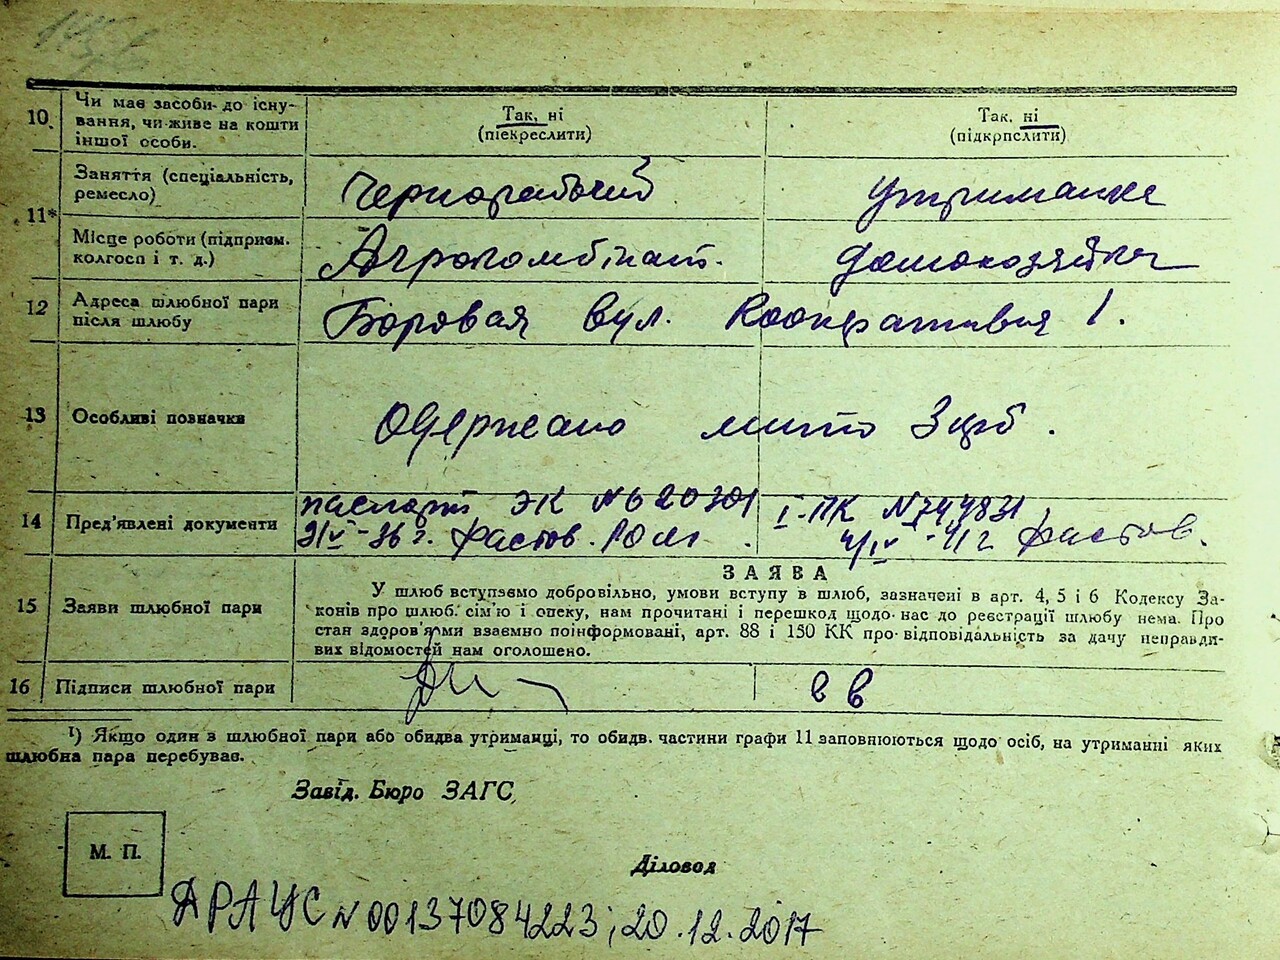 10. Чи має засоби до існу-
вання, чи живе на кошти
іншої особи.
Так, ні
(піекреслити)
Так, ні
(підкрпслити)
11*
Заняття (спеціальність,
ремесло)
Чернорабочий
утриманка
Місце роботи (підприєм.
колгосп і т. д.)
Агрокомбінат.
домохозяйка
12 Адреса шлюбної пари
після шлюбу
Боровая вул. Кооперативна 1.
13 Особливі позначки
Одержано мито 3 крб.
14 Пред'явлені документи
паспорт ЭК №620301
31/V-36 г. Фастов. РОМ
I-ПК N744831
4/IV-41 г Фастов.
15 Заяви шлюбної пари
ЗАЯВА
У шлюб вступаємо добровільно, умови вступу в шлюб, зазначені в арт. 4, 5 і 6 Кодексу За-
конів про шлюб. сім'ю і опеку, нам прочитані і перешкод щодо нас до реєстрації шлюбу нема. Про
стан здоров'я ми взаємно поінформовані, арт. 88 і 150 КК про відповідальність за дачу неправди-
вих відомостей нам оголошено.
16 Підписи шлюбної пари
¹) Якщо один з шлюбної пари або обидва утриманці, то обидв. частини графи 11 заповнюються щодо осіб, на утриманні яких
шлюбна пара перебуває.
Завід. Бюро ЗАГС
М. П.
Діловод
ДРАЦС N 00137084223; 20.12.2017